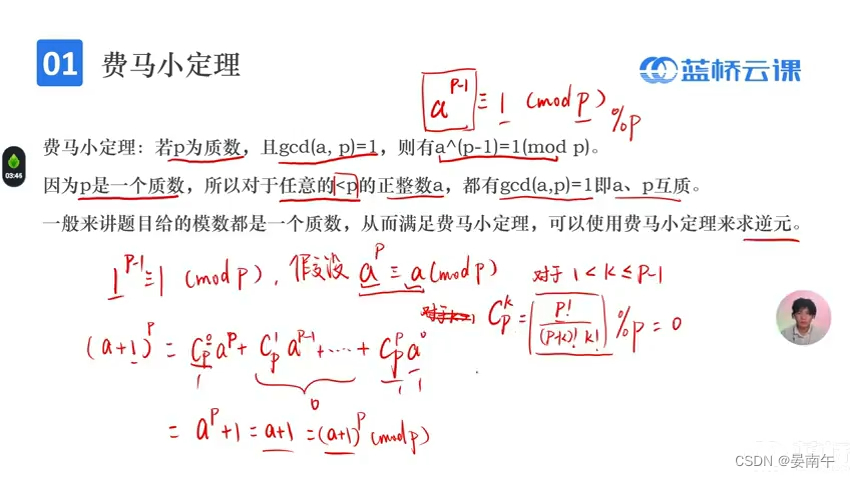 01 费马小定理
蓝桥云课
a^{p-1} ≡ 1 (mod p) %p
费马小定理：若p为质数，且gcd(a, p)=1，则有a^(p-1)=1(mod p)。
03:46
因为p是一个质数，所以对于任意的<p的正整数a，都有gcd(a,p)=1即a、p互质。
一般来讲题目给的模数都是一个质数，从而满足费马小定理，可以使用费马小定理来求逆元。
1^{p-1} ≡ 1 (mod p), 假设 a^p ≡ a (mod p)
对于 1 < k ≤ p-1
C_p^k = p! / (p-k)! k! %p = 0
(a+1)^p = C_p^0 a^p + C_p^1 a^{p-1} + ...... + C_p^p a^0
1 0 1 1
= a^p + 1 = a+1 = (a+1)^p (mod p)
CSDN @晏南午